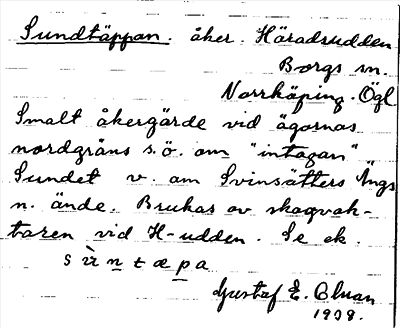 Sundtäppan. åker. Häradsudden
Borgs sn.
Norrköping. Ögl
Smalt åkergärde vid ägornas
nordgräns s.ö. om "intagan"
Sundet v. om Svinsätters Ängs
n. ände. Brukas av skogvak-
taren vid H-udden. Se ek.
s ù n t æ p a
Gustaf E. 
1939.